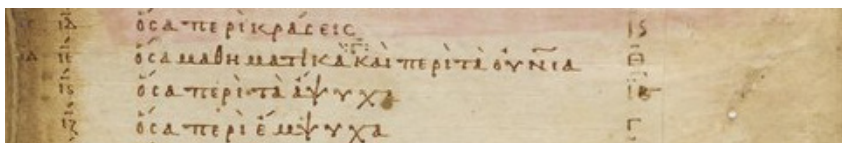 ιδ ὅσα περὶ κράσεις ιϛ
ιε ὅσα μαθηματικὰ καὶ περὶ τὰ οὐνια
ιϛ ὅσα περὶ τὰ ἄψυχα
ιζ ὅσα περὶ ἔμψυχα γ